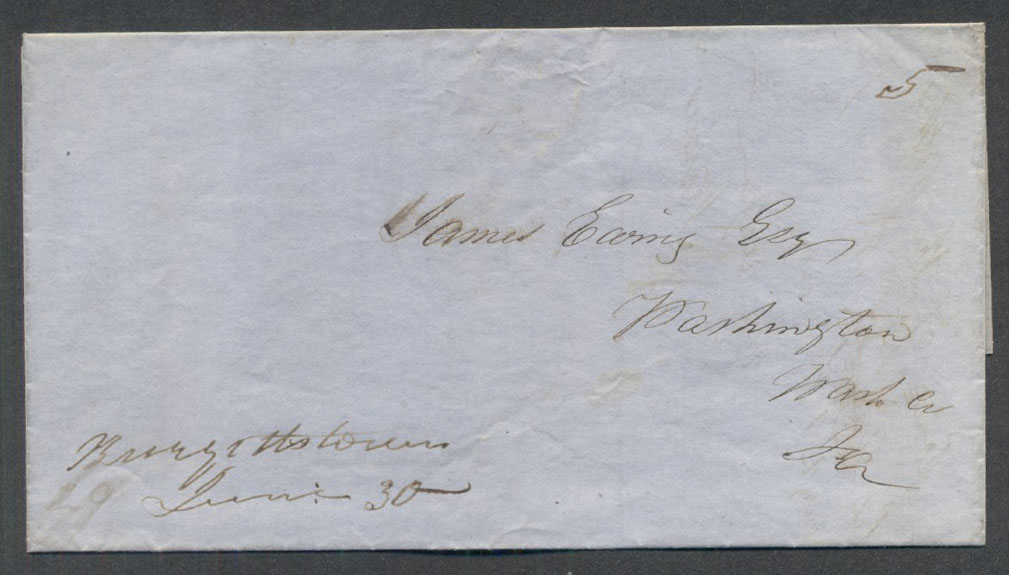 5
James Ewing Esq
Washington
Wash. Co
Burgettstown
June 30
29